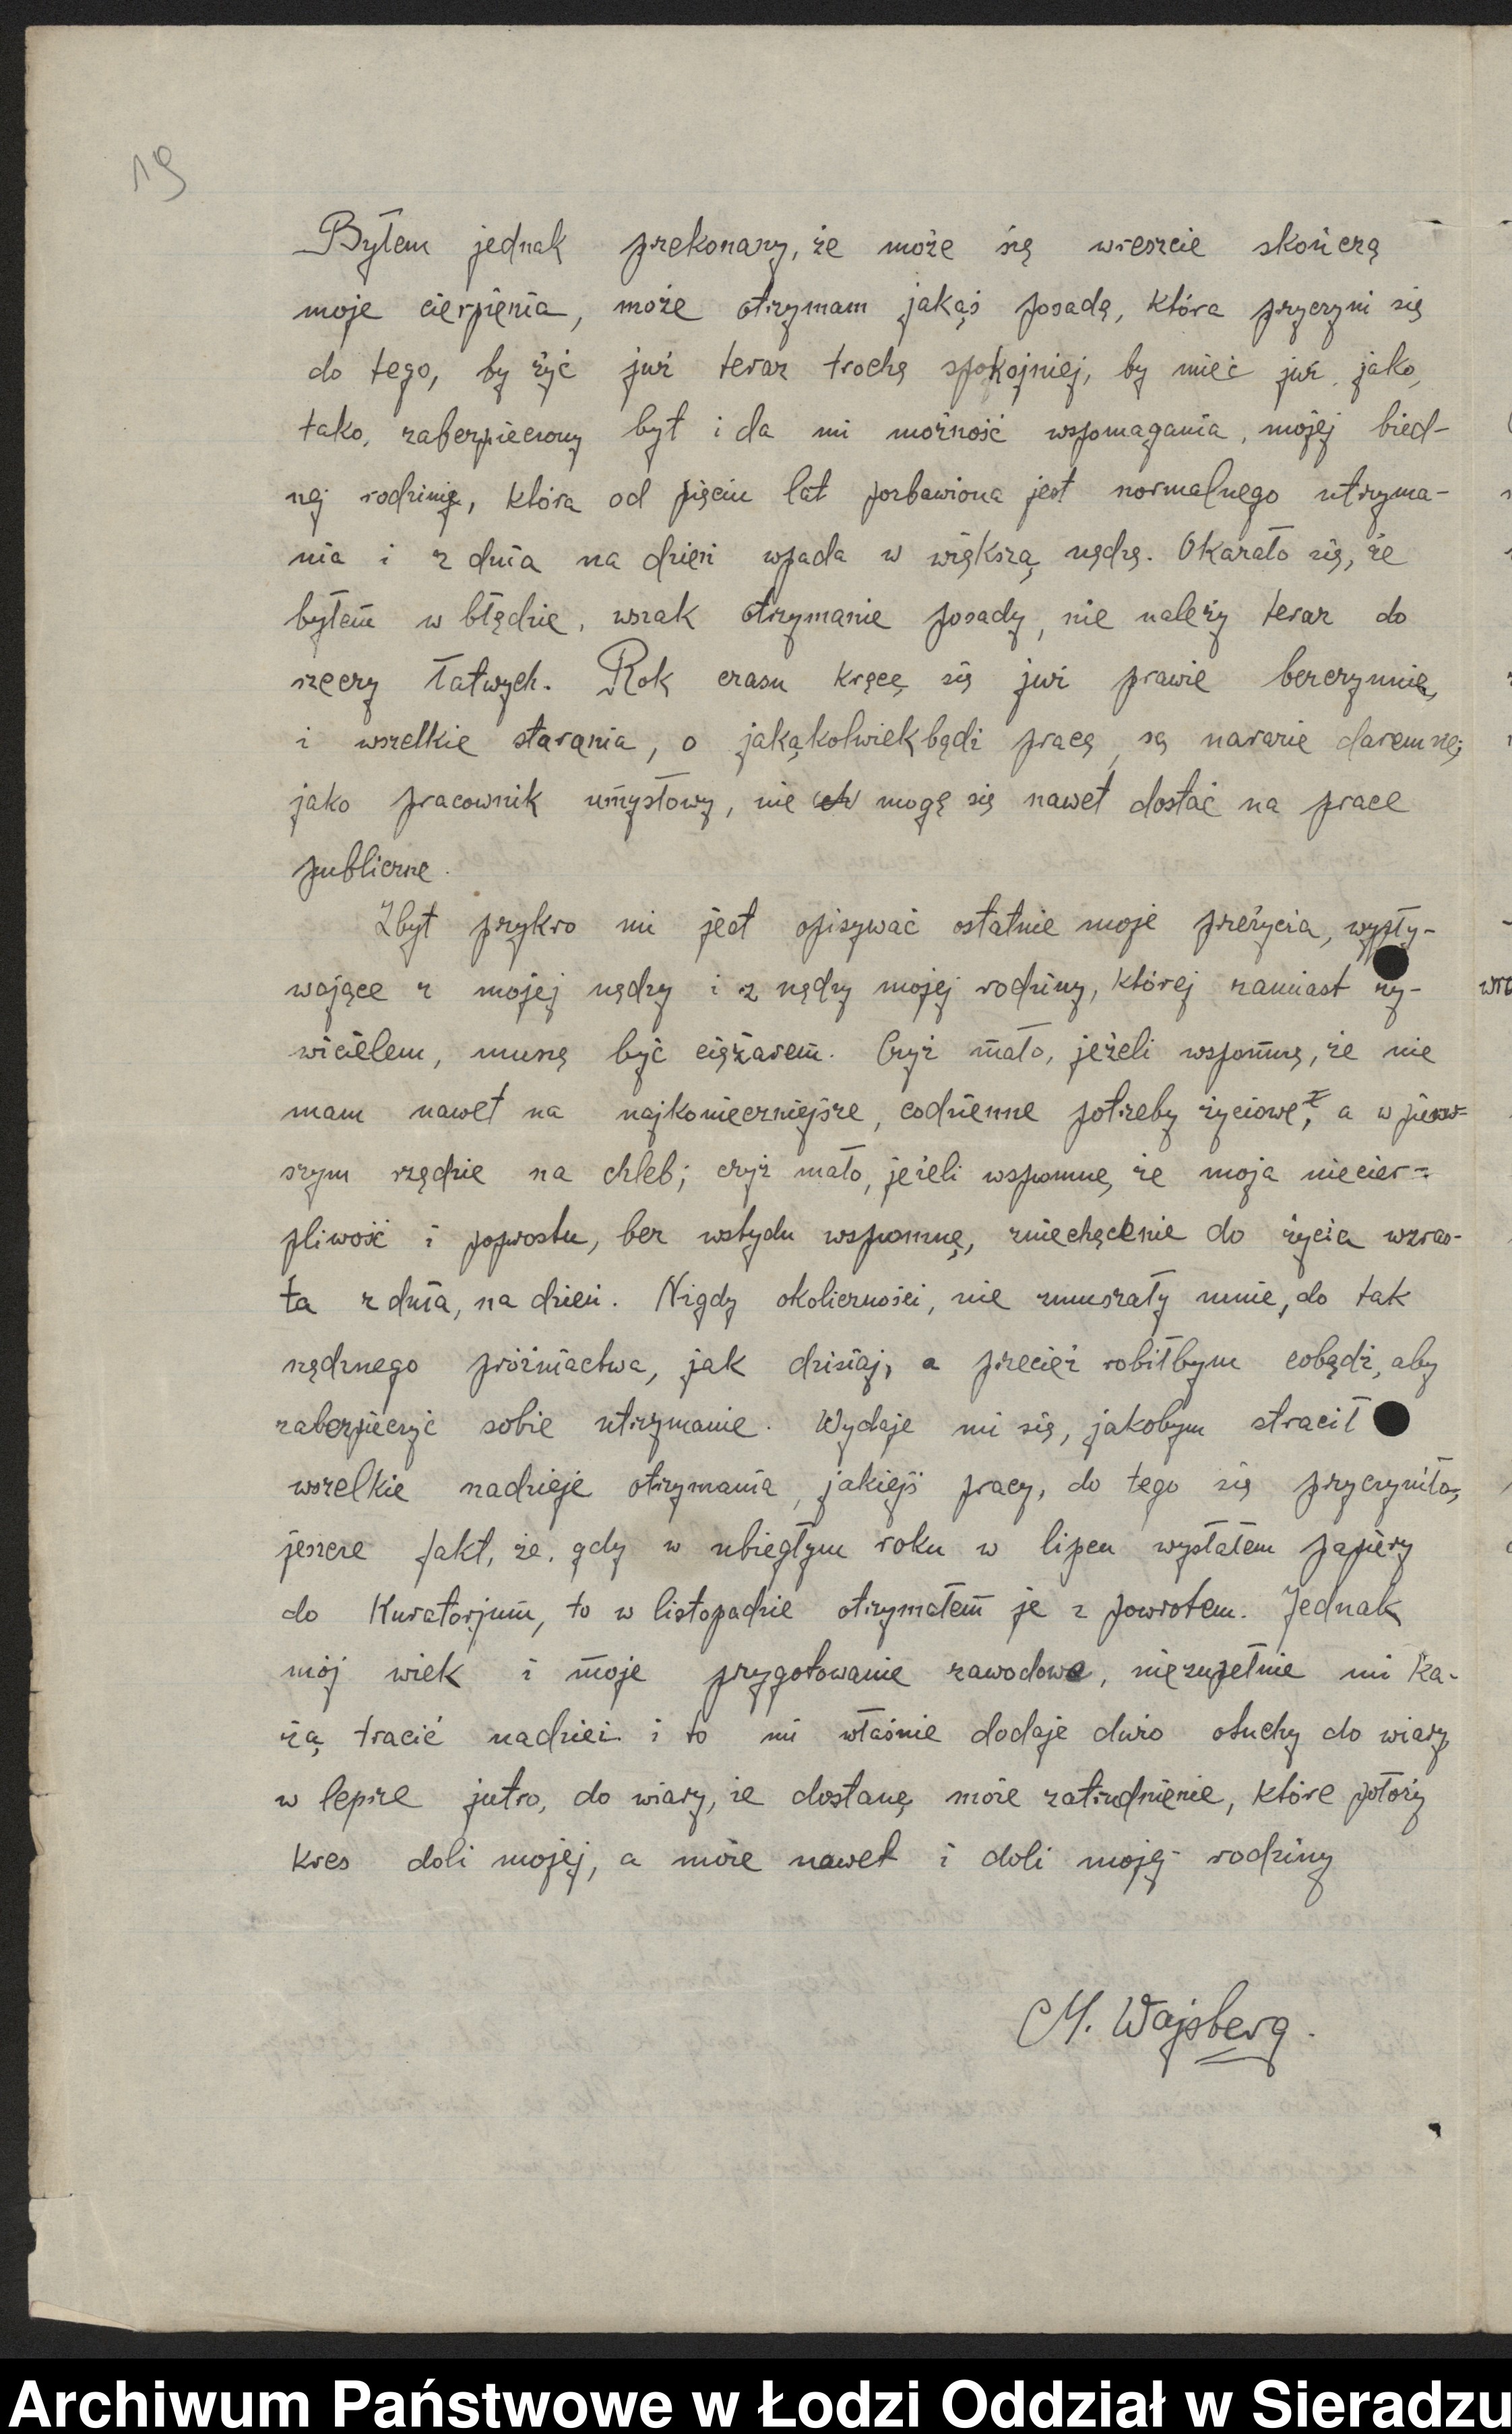 19
Byłem jednak przekonany, że może się wreszcie skończą
moje cierpienia, może otrzymam jakąś posadę, która przyczyni się
do tego, by żyć już teraz trochę spokojniej, by mieć już, jako,
tako, zabezpieczony byt i da mi możność wspomagania, mojej bied-
nej rodzinie, która od pięciu lat pozbawiona jest normalnego utrzyma-
nia i z dnia na dzień wpada w większą nędzę. Okazało się, że
byłem w błędzie, wszak otrzymanie posady, nie należy teraz do
rzeczy łatwych. Rok czasu kręcę się już prawie bezczynnie,
i wszelkie starania, o jakąkolwiekbądź pracę, są narazie daremne;
jako pracownik umysłowy, nie mogę się nawet dostać na prace
publiczne.
Zbyt przykro mi jest opisywać ostatnie moje przeżycia, wypły-
wające z mojej nędzy i z nędzy mojej rodziny, której zamiast ży-
wicielem, muszę być ciężarem. Czyż mało, jeżeli wspomnę, że nie
mam nawet na najkonieczniejsze, codzienne potrzeby życiowe, a w pierw-
szym rzędzie na chleb; czyż mało, jeżeli wspomnę, że moja niecier-
pliwość i poprostu, bez wstydu wspomnę, zniechęcenie do życia wzras-
ta z dnia, na dzień. Nigdy okoliczności, nie zmuszały mnie, do tak
nędznego próżniactwa, jak dzisiaj, a przecież robiłbym cobądź, aby
zabezpieczyć sobie utrzymanie. Wydaje mi się, jakobym stracił
wszelkie nadzieje otrzymania, jakiejś pracy, do tego się przyczynił
jeszcze fakt, że, gdy w ubiegłym roku w lipcu wysłałem papiery
do Kuratorjum, to w listopadzie otrzymałem je z powrotem. Jednak
mój wiek i moje przygotowanie zawodowe, niezupełnie mi ka-
żą tracić nadziei i to mi właśnie dodaje dużo otuchy do wiary
w lepsze jutro, do wiary, że dostanę może zatrudnienie, które położy
kres doli mojej, a może nawet i doli mojej rodziny
M. Wajsberg.
Archiwum Państwowe w Łodzi Oddział w Sieradzu